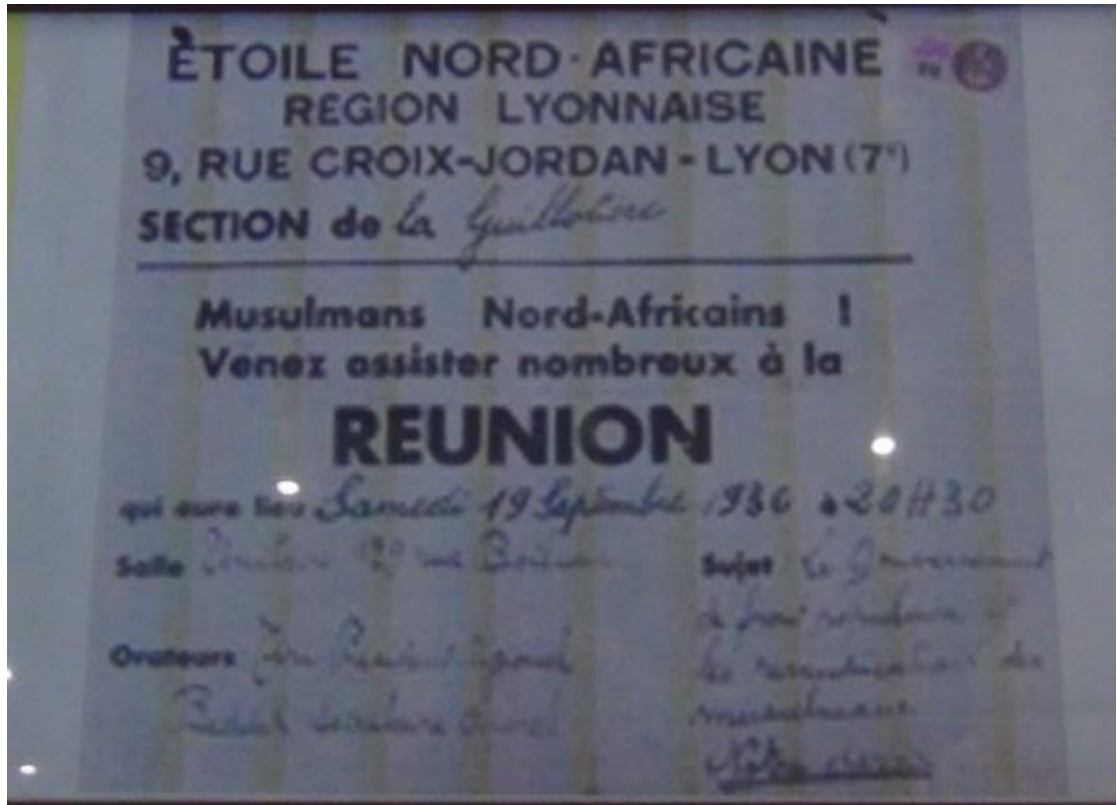 ÈTOILE NORD-AFRICAINE
REGION LYONNAISE
9, RUE CROIX-JORDAN - LYON (7e)
SECTION de la Guillotière
Musulmans Nord-Africains !
Venez assister nombreux à la
REUNION
qui aura lieu Samedi 19 Septembre 1936 à 20H30
Salle rue
Sujet Le Gouvernement
de front populaire et
les revendications des
musulmans
Orateurs President